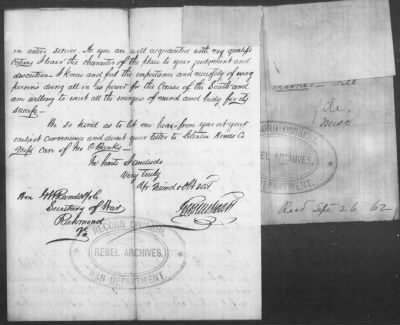 in active service. As you are well acquainted with my qualifi
cations I leave the character of the place to your judgment and
discretion. I know and feel the importance and necessity of every
persons doing all in his power for the cause of the South and
am willing to exert all the energies of mind and body for its
success.
Be so kind as to let me hear from you at your
earliest convenience and direct your letter to Clinton Hinds Co
Miss care of Mr
In haste I conclude
Very truly
Yr friend & Obt Svt
Hon G W Randolph
Secretary of War
Richmond
Va
RECORD DIVISION
REBEL ARCHIVES.
WAR DEPARTMENT
File
Misc
RECORD DIVISION
REBEL ARCHIVES
WAR DEPARTMENT
Recd Sept 26. 62